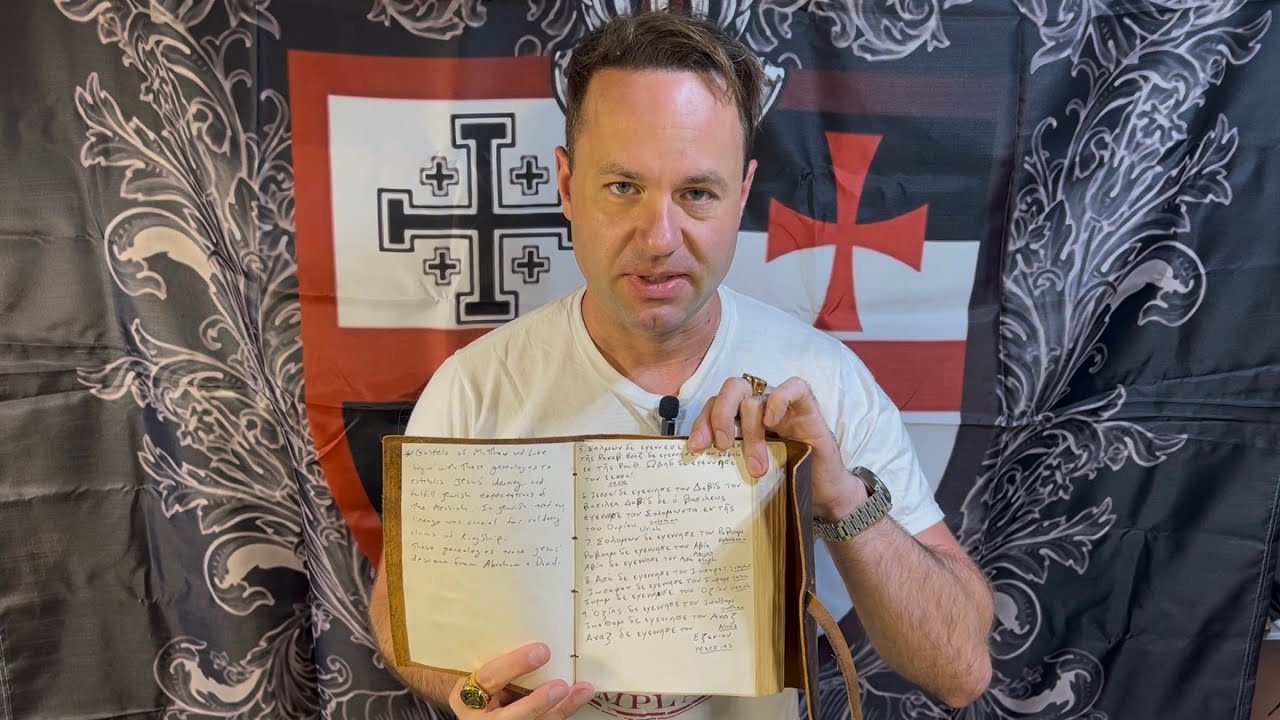 * Gospels of Mathew and Luke
begin with these genealogies to
establish Jesus' identity and
fulfill Jewish expectations of
the Messiah. In Jewish tradition,
lineage was crucial for validating
claims of Kingship.
These genealogies trace Jesus'
descent from Abraham & David.
5. Σαλμων δε εγεννησε
τῆς Ραχαβ. Βοαζ δε εγεννησε τον Ωβηδ
εκ τῆς Ρουθ. Ωβηδ δε εγεννησε
τον Ιεσσαί
Jesse
6. Ιεσσαί δε εγεννησε τον Δαβίδ τον
βασιλεα Δαβίδ δε ὁ βασιλευς
εγεννησε τον Σολομωντα εκ τῆς
του Ουρίου
Solomon
Uriah
7. Σολομων δε εγεννησε τον Ροβοαμ
Ροβοαμ δε εγεννησε τον Αβία
Αβία δε εγεννησε τον Ασα
8. Ασα δε εγεννησε τον Ιωσαφατ
Ιωσαφατ δε εγεννησε τον Ιωραμ
Ιωραμ δε εγεννησε τον Οζίαν
9. Οζίας δε εγεννησε τον Ιωαθαμ
Ιωαθαμ δε εγεννησε τον Αχαζ
Αχαζ δε εγεννησε τον
Εζεκιαν
MPL